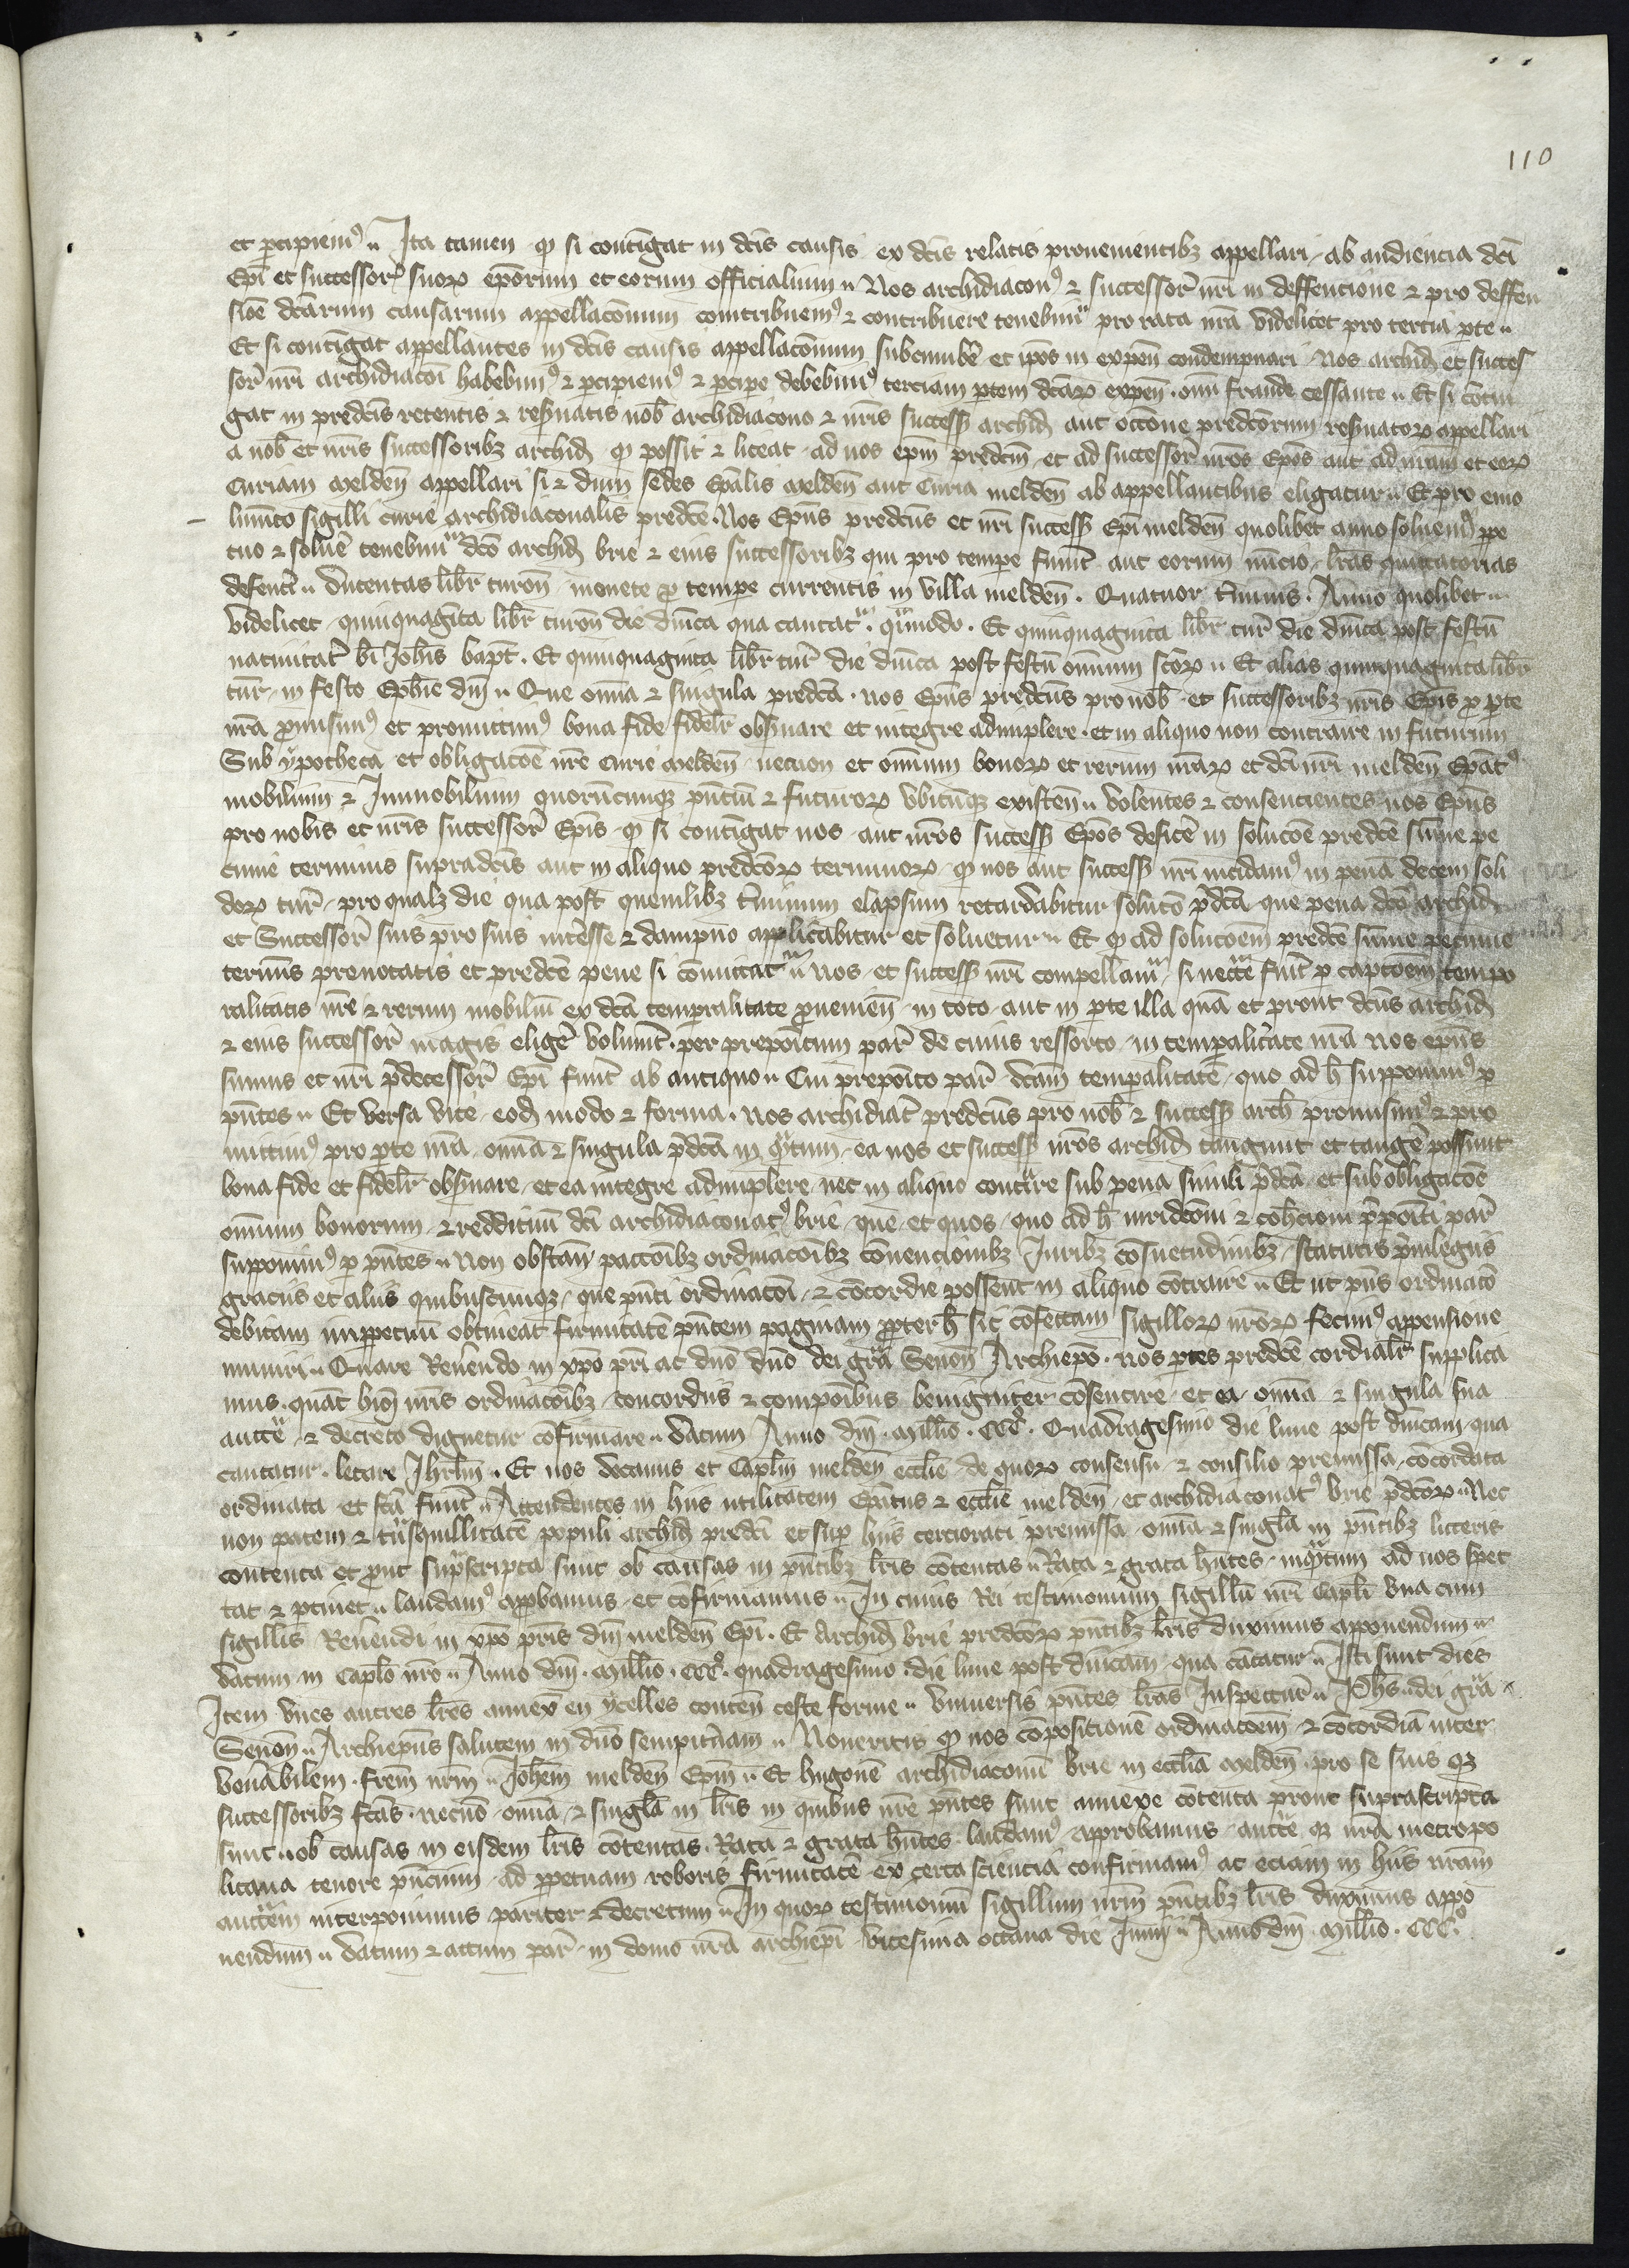 110
et p̄cipiemꝰ ·· Ita tamen qđ si contingat in dc̄is causis ex dc̄is relatis prouenientibꝫ appellari ab audiencia dc̄i
Epī et successor̄ suoꝝ epōrum et eorum officialium ·· Nos archidiaconꝰ ⁊ successor̄ nr̄i in deffencione ⁊ pro deffen
siōe dc̄arum causarum appellacōnum contribuemꝰ ⁊ contribuere tenebimᵘʳ pro rata nr̄a videlicet pro tercia p̄te ··
Et si contingat appellantes in dc̄is causis appellacōnum subcumbe᷑ et ip̄os in expen̄ condempnari · Nos archid̄ et succes
sor̄ nr̄i archidiacoī habebimꝰ ⁊ p̄cipiemꝰ ⁊ p̄cipe debebimꝰ terciam p̄tem dc̄aꝝ expen̄ · om̄i fraude cessante ·· Et si cōtin
gat in predc̄is retentis ⁊ reseruatis nob̄ archidiacono ⁊ nr̄is success̄ archid̄ aut occōne predc̄orum reseruatoꝝ appellari
a nob̄ et nr̄is successoribꝫ archid̄ qđ possit ⁊ liceat ad nos ep̄m predc̄m et ad successor̄ nr̄os Ep̄os aut ad nr̄am et eoꝝ
Curiam melden̄ appellari si ⁊ dum sedes Ep̄alis melden̄ aut Curia melden̄ ab appellantibus eligatur ·· Et pro emo
lumento sigilli curie archidiaconalis predc̄e · Nos Ep̄us predc̄us et nr̄i success̄ Ep̄i melden̄ quolibet anno soluemꝰ p̄pe
tuo ⁊ solue᷑ tenebimᵘʳ dc̄o archid̄ brie ⁊ eius successoribꝫ qui pro tempe fuerīt aut eorum nūcio lr̄as quittatorias
defenti ·· ducentas libr̄ turon̄ monete p tempe currentis in villa melden̄ · Quatuor t̄minis · Anno quolibet ··
videlicet quinquaginta libr̄ turon̄ die dn̄ica qua cantatᵘʳ · q̄simodo · Et quinquaginta libr̄ tur̄ die dn̄ica post festū
natiuitat̄ bt̄i Joh̄is bapt̄ · Et quinquaginta libr̄ tur̄ die dn̄ica post festū om̄ium sc̄oꝝ ·· Et alias quinquaginta libr̄
tur̄ in festo Eph̄ie dn̄i ·· Que om̄ia ⁊ singula predc̄a · nos Ep̄us predc̄us pro nob̄ et successoribꝫ nr̄is Ep̄is p p̄te
nr̄a p̄misimꝰ et promittimꝰ bona fide fidelr̄ obseruare et integre adimplere · et in aliquo non contraire in futurum
Sub ypotheca et obligacōe nr̄e Curie melden̄ necnon et om̄ium bonoꝝ et rerum nr̄aꝝ et dc̄i nr̄i melden̄ Ep̄atꝰ
mobilium ⁊ Immobilium quorūcumqꝫ p̄ntiū ⁊ futuroꝝ vbicūqꝫ existen̄ ·· volentes ⁊ consencientes nos Ep̄us
pro nobis et nr̄is successor̄ Ep̄is qđ si contingat nos aut nr̄os success̄ Ep̄os defice᷑ in solucōe predc̄e sūme pe
cunie terminis supradc̄is aut in aliquo predc̄oꝝ terminoꝝ qđ nos aut success̄ nr̄i incidamꝰ in penā decem soli
doꝝ tur̄ pro qualꝫ die qua post quemlibꝫ t̄minum elapsum retardabitur soluco᷑ p̄dc̄a que pena dc̄o archid̄
et Successor̄ suis pro suis int̄esse ⁊ dampno applicabitur et soluetur ·· Et qđ ad solucōem predc̄e sūme pecunie
terminis prenotatis et predc̄e pene si cōmittatᵘʳ nos et success̄ nr̄i compellamᵘʳ si necc̄e fuīt p captōem tempo
ralitatis nr̄e ⁊ rerum mobiliū ex dc̄a temporalitate p̄uenien̄ in toto aut in p̄te illa quā et prout dc̄us archid̄
⁊ eius successor̄ magis elige᷑ voluerīt per prepoītum par̄ de cuius ressorto in temporalitate nr̄a nos ep̄us
sumus et nr̄i p̄decessor̄ Ep̄i fuer̄t ab antiquo ·· Cui prepoīto par̄ dc̄am temporalitatē quo ad h̄ supponimꝰ p
p̄ntes ·· Et versa vice eod̄ modo ⁊ forma · nos archidiac̄ predc̄us pro nob̄ ⁊ success̄ arch̄ promisimꝰ ⁊ pro
mittimꝰ pro p̄te nr̄a om̄ia ⁊ singula p̄dc̄a in q̄ntum ea nos et success̄ nr̄os archid̄ tangunt et tange᷑ possunt
bona fide et fidelr̄ obseruare et ea integre adimplere nec in aliquo cont̄ire sub pena simili p̄dc̄a et sub obligacōe
om̄ium bonorum ⁊ reddituū dc̄i archidiaconatꝰ brie que et quos quo ad h̄ iuridcōni ⁊ coh̄cioni p̄poīti par̄
supponimꝰ p p̄ntes ·· Non obstan̄ paccōibꝫ ordinacōibꝫ cōuencionibꝫ Juribꝫ cōsuetudinibꝫ statutis p̄uilegiis
graciis et aliis quibuscumqꝫ que p̄nti ordinacōi ⁊ cōcordie possent in aliquo cōtraire ·· Et ut p̄ns ordinacō
debitam imp̄petuū obtineat firmitatē p̄ntem paginam p̄pterh̄ sic cōfectam sigilloꝝ nr̄oꝝ fecimꝰ appensione
muniri ·· Quare Reuerendo in xp̄o pr̄i ac dn̄o dn̄o dei gr̄a Senon̄ Archiepō · nos p̄tes predc̄e cordialr̄ supplica
mus quat̄ hiis nr̄is ordinacōibꝫ concordiis ⁊ compoībus benigniter cōsentire et ea om̄ia ⁊ singula sua
auctᵗᵉ ⁊ decreto dignetur cōfirmare ·· datum Anno dn̄i · millīo · CCCᵒ · Quadragesimo die lune post dn̄icam qua
cantatur · letare Jhrl̄m · Et nos decanus et Capl̄m melden̄ eccl̄ie de quoꝝ consensu ⁊ consilio premissa cōcordata
ordinata et fc̄a fuer̄t ·· Attendentes in hiis utilitatem Ep̄atus ⁊ eccl̄ie melden̄ et archidiaconatꝰ brie p̄dc̄oꝝ ·· Nec
non pacem ⁊ t̄nsquillitatē populi archid̄ predc̄i et sup hiis cerciorati premissa om̄ia ⁊ singl̄a in p̄ntibꝫ litteris
contenta et p̄ut sup̄scripta sunt ob causas in p̄ntibꝫ lr̄is cōtentas ·· Rata ⁊ grata h̄ntes inq̄ntum ad nos spec
tat ⁊ p̄tinet ·· laudamꝰ app̄bamus et cōfirmamus ·· In cuius Rei testimonium sigillū nr̄i Capl̄i vna cum
sigillis Reuerendi in xp̄o pr̄is dn̄i melden̄ Ep̄i · Et Archid̄ brie predc̄oꝝ p̄ntibꝫ lr̄is duximus apponendum ··
datum in Caplō nr̄o ·· Anno dn̄i · millīo · CCCᵒ · quadragesimo · die lune post dn̄icam qua cātatur ·· Isti sunt dies
Item vnes autres lr̄es annex̄ en ycelles conten̄ ceste forme ·· Vniuersis p̄ntes lr̄as Inspectur̄ ·· Ph̄s dei gr̄a
Senon̄ ·· Archiep̄us salutem in dn̄o sempit̄nam ·· Noueritis qđ nos cōpositionē ordinacōem ⁊ cōcordiā inter
ven̄abilem · fr̄em nr̄m ·· Joh̄em melden̄ Ep̄m ·· Et hugonē archidiaconū brie in eccl̄ia melden̄ pro se suis qꝫ
successoribꝫ fc̄as · necnō om̄ia ⁊ singl̄a in lr̄is in quibus nr̄e p̄ntes sunt annexe cōtenta prout suprascripta
sunt ·· ob causas in eisdem lr̄is cōtentas · Rata ⁊ grata h̄ntes · laudamꝰ approbamus auctᵗᵉ qꝫ nr̄a metropo
litana tenore p̄ncium ad p̄petuam roboris firmitatē ex certa sciencia confirmamꝰ ac eciam in hiis nr̄am
auctᵗᵉᵐ interponimus pariter ⁊ decretum ·· In quoꝝ testimoniū sigillum nr̄m p̄ntibꝫ lr̄is duximus appo
nendum ·· datum ⁊ actum par̄ in domo nr̄a archiep̄i vicesima octaua die Junij ·· Anno dn̄i millīo · CCCᵒ